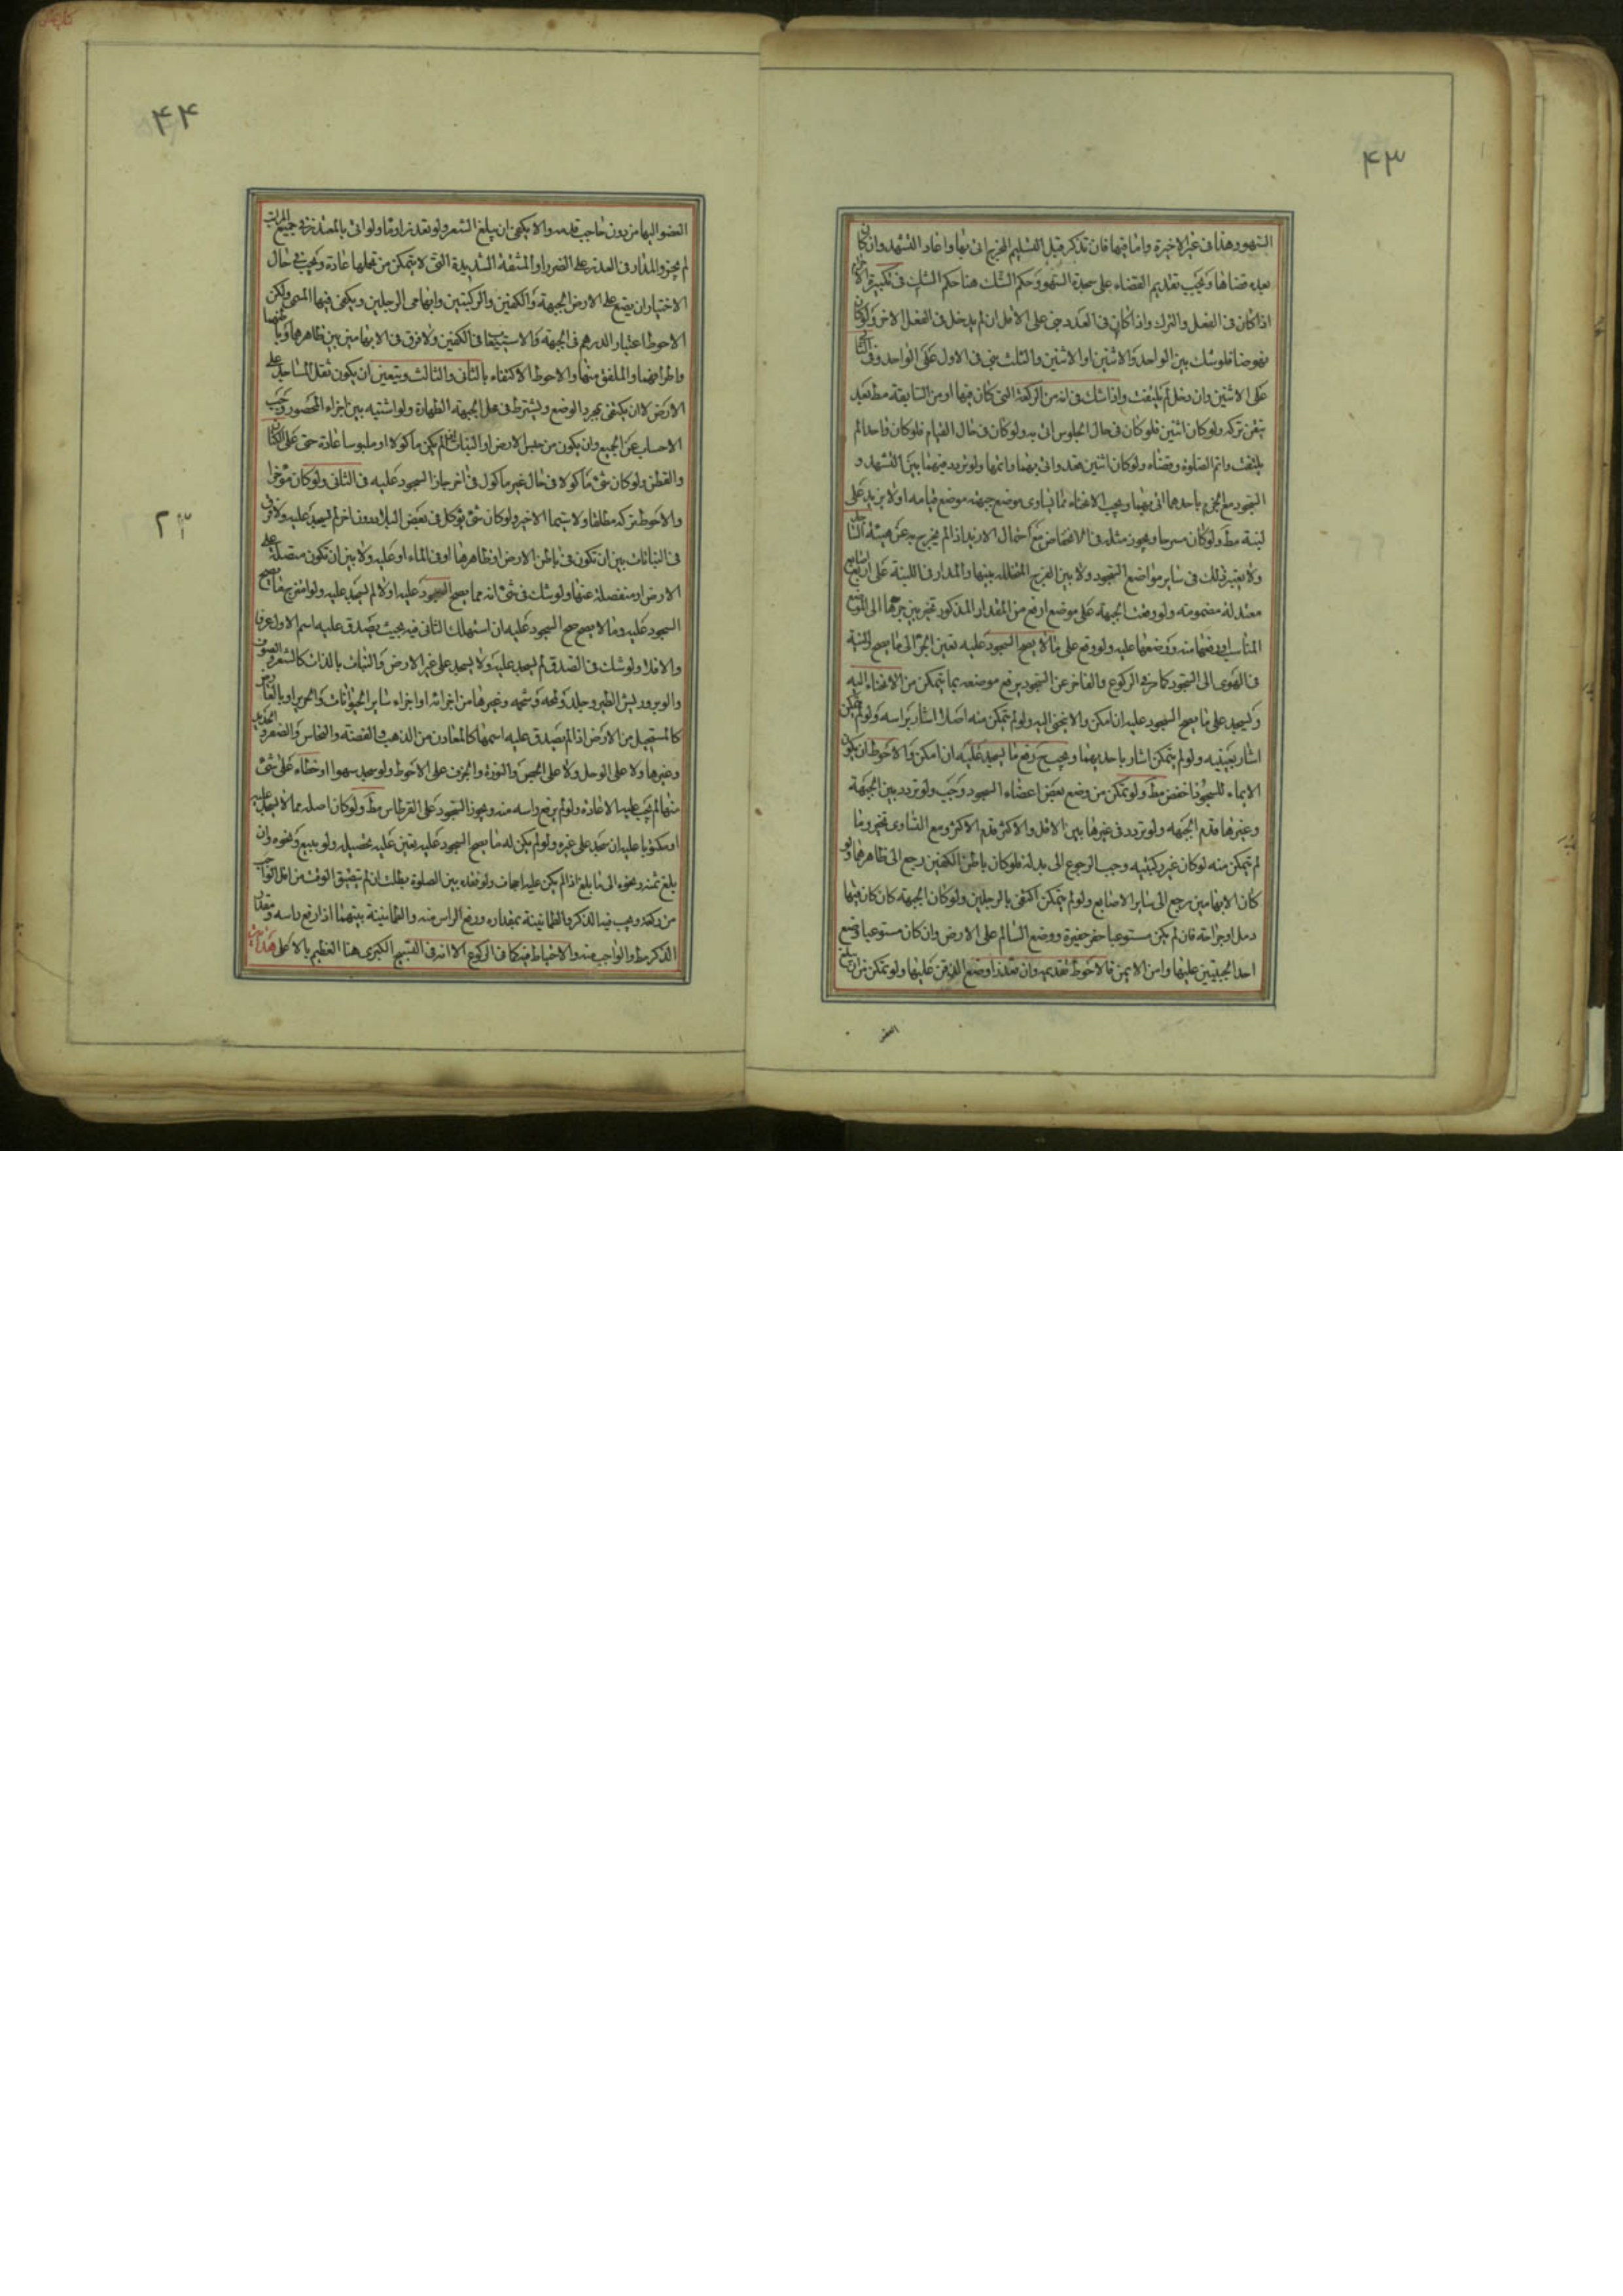 ۴۳
السهو وهذا فى غير الاخيرة واما فيها فان تذكر قبل التسليم المخرج اتى بها واعاد التشهد وان كان
بعده قضاها ويجب تقديم القضاء على سجدة السهو وحكم الشك هنا حكم الشك فى تكبيرة
اذا كان فى الفعل والترك واذا كان فى العدد بنى على الاقل ان لم يدخل فى الفعل الاخر ولو كان
نهوضا فلو شك بين الواحد والاثنين او الاثنين والثلث بنى فى الاول على الواحد وفى
على الاثنين وان دخل لم يلتفت واذا شك فى انه من الركعة التى كان فيها او من السابقة مط بعد
تيقن تركه ولو كان اثنين فلو كان فى حال الجلوس اتى به ولو كان فى حال القيام فلو كان واحدا لم
يلتفت واتم الصلوة وقضاه ولو كان اثنين هدم واتى بهما واتمها ولو تردد بينهما بين التشهد و
السجود مع الجزم باحدهما اتى بهما ويجب الانحناء بما يساوى موضع جبهته موضع قيامه او لا يزيد على
لبنة مط ولو كان مسرحا ويجوز مثله فى الانخفاض مع احتمال الازيد اذا لم يخرج به عن هيئة
ولا يعتبر ذلك فى ساير مواضع السجود ولا بين الفرج المتخلله بينها والمدار فى اللبنة على اربع
معتدلة مضمومة ولو وضعت الجبهة على موضع ارفع من المقدار المذكور تخير بين جرها الى الموضع
المناسب ورفعها منه ووضعها عليه ولو وقع على ما لا يصح السجود عليه تعين الجر الى ما يصح والنية
فى الهوى الى السجود كما فى الركوع والعاجز عن السجود يرفع موضعه بما يتمكن من الانحناء اليه
ويسجد على ما يصح السجود عليه ان امكن والا ينحنى اليه ولو لم يتمكن منه اصلا اشار براسه ولو لم يمكن
اشار بعينيه ولو لم يتمكن اشار باحديهما ويجب رفع ما يسجد عليه ان امكن والاحوط ان يكون
الايماء للسجود اخفض مط ولو تمكن من وضع بعض اعضاء السجود وجب ولو تردد بين الجبهة
وغيرها قدم الجبهه ولو تردد فى غيرها بين الاقل والاكثر قدم الاكثر ومع التساوى تخير وما
لم يتمكن منه لو كان غير ركبتيه وجب الرجوع الى بدله فلو كان باطن الكفين رجع الى ظاهرها ولو
كان الابهامين رجع الى ساير الاصابع ولو لم يتمكن اكتفى بالرجلين ولو كان الجبهة كان كان فيها
دمل او جراحة فان لم يكن مستوعبا حفر حفيرة ووضع السالم على الارض وان كان مستوعبا وضع
احد الجبينين عليها وامن الايمن فالاحوط تقديمه وان تعذرا وضع الذقن عليها ولو تمكن من ان يبلغ
العضو
۴۴
العضو اليها من دون حاجب قدمه والا يكفى ان يبلغ الشعر ولو تعذر اومأ ولو اتى بالمعتذر فى جميع المراتب
لم يجز والمدار فى العذر على الضرر او المشقة الشديدة التى لا يتمكن من تحملها عادة ويجب فى حال
الاختيار ان يضع على الارض الجبهة والكفين والركبتين وابهامى الرجلين ويكفى فيها المسمى ولكن
الاحوط اعتبار الدرهم فى الجبهة والاستيعاب فى الكفين ولا فرق فى الابهامين بين ظاهرهما
واطرافهما والملفق منها والاحوط الاكتفاء بالثانى والثالث ويتعين ان يكون ثقل المساجد على
الارض لا ان يكتفى بمجرد الوضع ويشترط فى محل الجبهة الطهارة ولو اشتبه بين اجزاء المحصور وجب
الاجتناب عن الجميع وان يكون من جنس الارض او النبات لم يكن ماكولا او ملبوسا عادة حتى على الكتان
والقطن ولو كان شئ ماكولا فى حال غير ماكول فى اخر جاز السجود عليه فى الثانى ولو كان مؤخرا
والاحوط تركه مطلقا ولا سيما الاخير ولو كان شئ يؤكل فى بعض البلاد دون اخر لم يسجد عليه ولا فرق
فى النباتات بين ان تكون فى باطن الارض او ظاهرها او فى الماء او عليه ولا بين ان تكون متصلة على
الارض او منفصلة عنها ولو شك فى شئ انه مما يصح السجود عليه او لا لم يسجد عليه ولو امتزج ما يصح
السجود عليه وما لا يصح صح السجود عليه ان استهلك الثانى فيه بحيث يصدق عليه اسم الاول عرفا
والا فلا ولو شك فى الصدق لم يسجد عليه ولا يسجد على غير الارض والنبات بالذات كالشعر والصوف
والوبر وريش الطير وجلده ولحمه وشحمه وغيرها من اجزائه او اجزاء ساير الحيوانات والحرير او بالعارض
كالمستحيل من الارض اذا لم يصدق عليه اسمها كالمعادن من الذهب والفضة والنحاس والصفر والحديد
وغيرها ولا على الوحل ولا على الجص والنورة والخزف على الاحوط ولو سجد سهوا او خطاء على شئ
منها لم يجب عليه الاعادة ولو لم يرفع راسه منه ويجوز السجود على القرطاس مط ولو كان اصله مما لا يسجد عليه
او مكتوبا عليه ان سجد على غيره ولو لم يكن له ما يصح السجود عليه يتعين عليه تحصيله ولو ببيع ونحوه وان
بلغ ثمنه ونحوه الى ما بلغ اذا لم يكن عليه اجحاف ولو فقده بين الصلوة بطلت ان لم يتضيق الوقت من
من ركعة ويجب فيه الذكر والطمانينة بمقداره ورفع الراس منه والطمانينة بينهما اذا رفع راسه
الذكر مط والواجب منه والاحتياط فيه كما فى الركوع الا انه فى التسبيح الكبرى هنا العظيم بالاعلى هداية